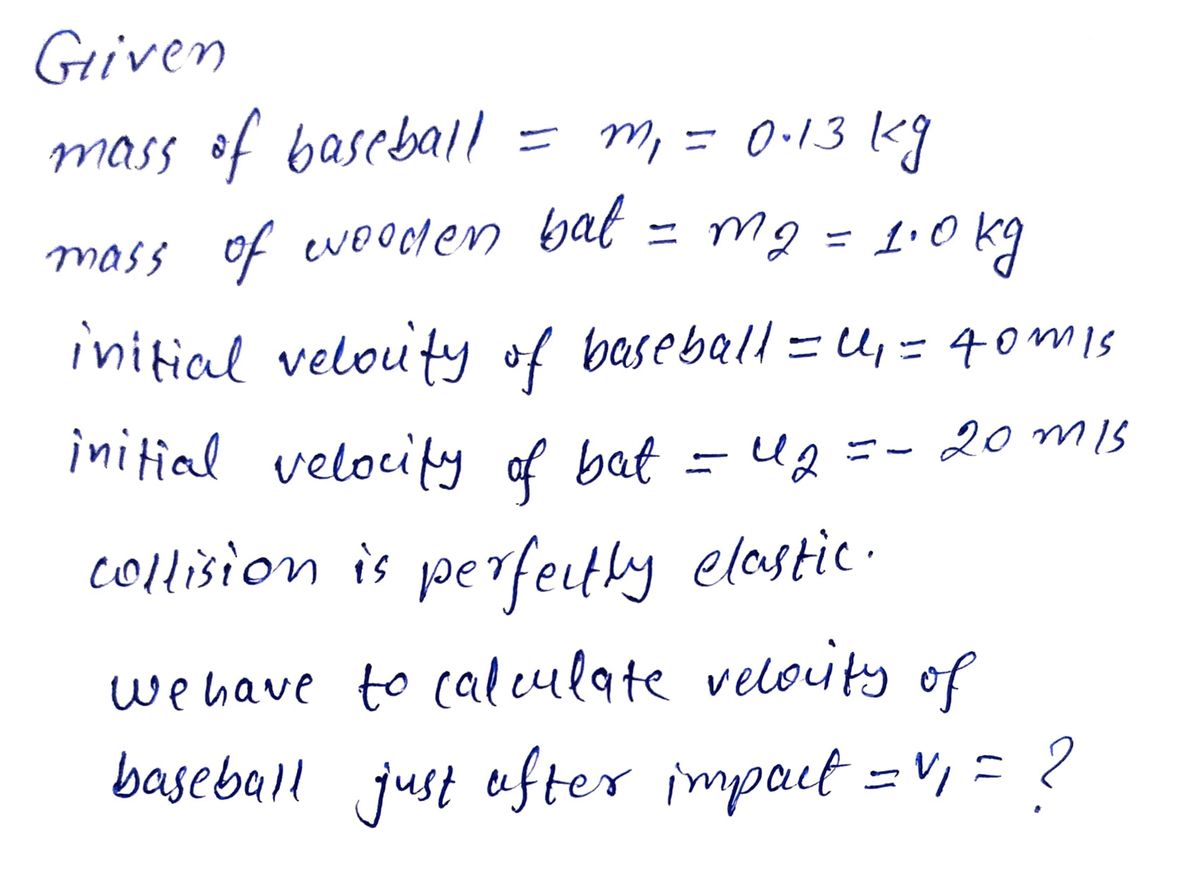 Given
mass of baseball = m₁ = 0.13 kg
mass of wooden bat = m₂ = 1.0 kg
initial velocity of baseball = u₁ = 40 m/s
initial velocity of bat = u₂ = - 20 m/s
collision is perfectly elastic.
we have to calculate velocity of
baseball just after impact = v₁ = ?